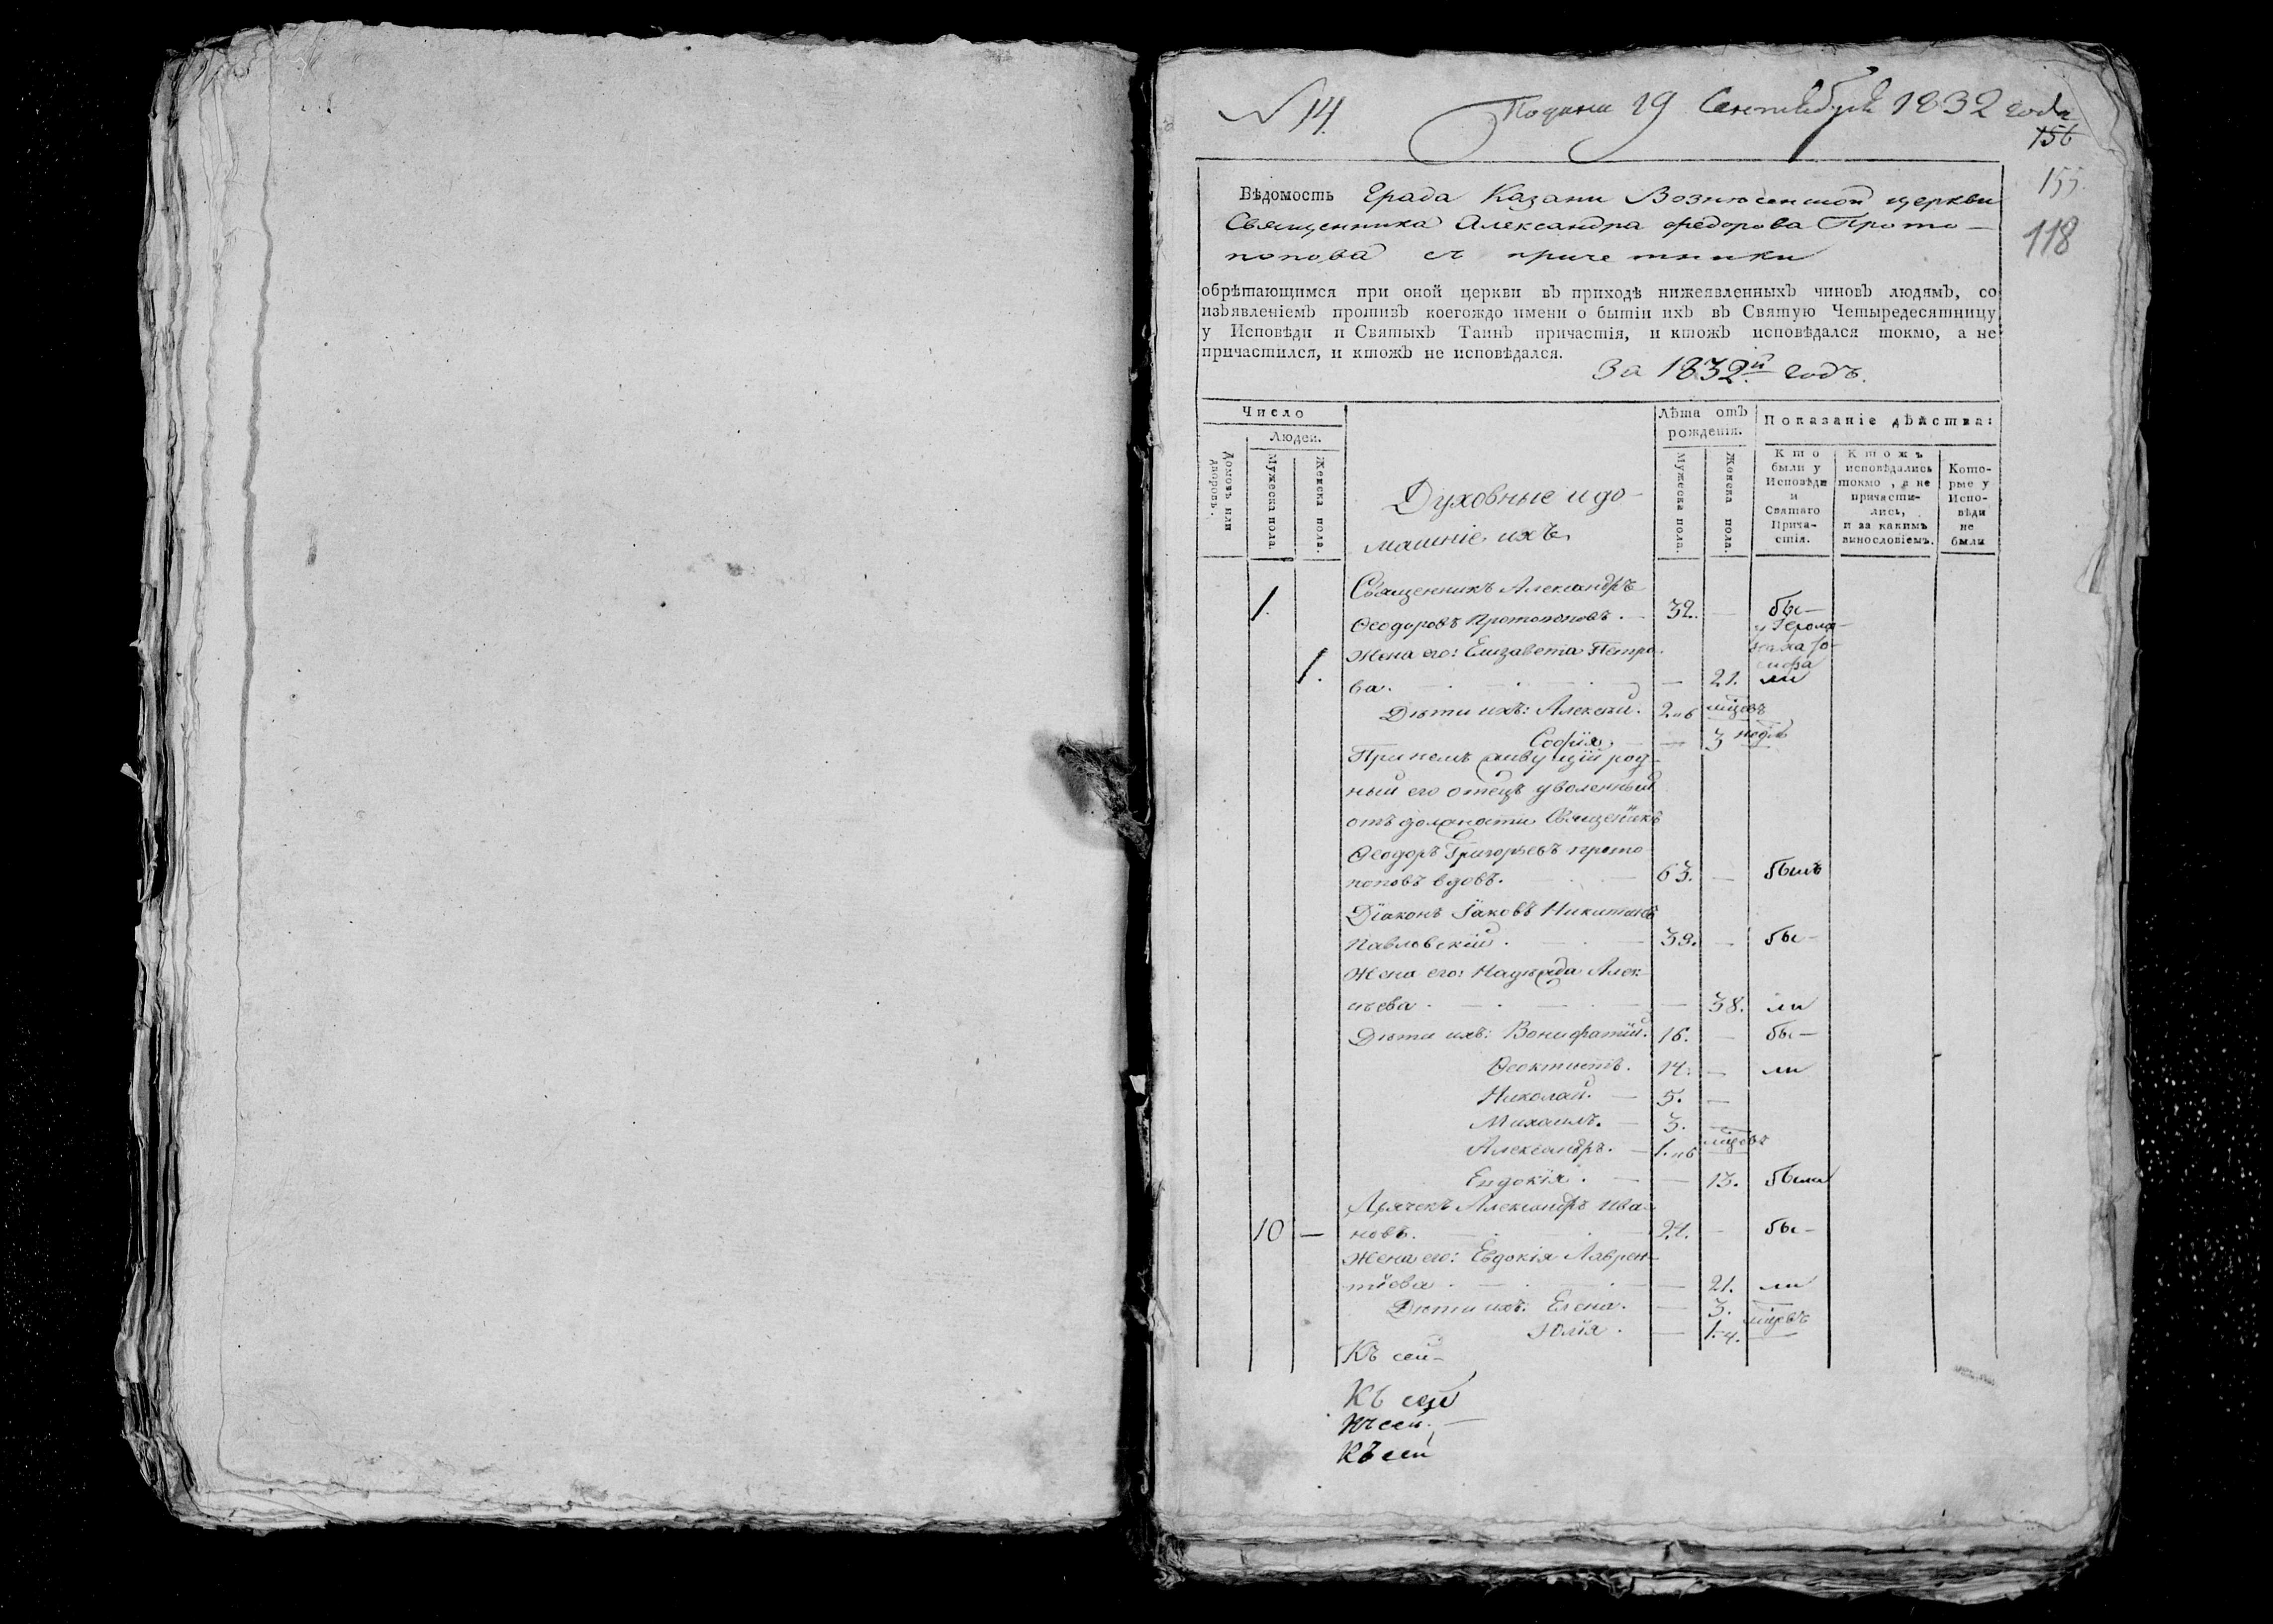 № 14. Подана 19 Сентября 1832 года
156
155
118
Вѣдомость Града Казани Вознесенской церкви
Священника Александра Федорова Прото-
попова съ причетники
обрѣтающимся при оной церкви въ приходѣ нижеявленныхъ чиновъ людямъ, со
изъявленіемъ противъ коегождо имени о бытіи ихъ въ Святую Четыредесятницу
у Исповѣди и Святыхъ Таинъ причастія, и ктожъ исповѣдался токмо, а не
причастился, и ктожъ не исповѣдался.
За 1832й годъ.
Число
Людей.
Домовъ или дворовъ.
Мужеска пола.
Женска пола.
Духовные и до-
машніе ихъ
Лѣта отъ
рожденія.
Мужеска пола.
Женска пола.
Показаніе дѣйства:
Кто
были у
Исповѣди
и
Святаго
Прича-
стія.
Ктожъ
исповѣдались
токмо, а не
причасти-
лись,
и за какимъ
винословіемъ.
Кото-
рые у
Испо-
вѣди
не
были
Священникъ Александръ
1. Ѳеодоровъ Протопоповъ. 32. — бы-
Жена его: Елизавета Петро-
1. ва. — 21. ли
Дѣти ихъ: Алексѣй. 2. и 6 мцовъ
Софія — 3 недѣл
При немъ живущій род-
ный его отецъ уволенный
отъ должности Священникъ
Ѳеодоръ Григорьевъ прото-
поповъ вдовъ. 63. — былъ
Діаконъ Іаковъ Никитинъ
Павловскій. 39. — бы-
Жена его: Надежда Алек-
сѣева. — 38. ли
Дѣти ихъ: Вонифатій. 16. — бы-
Ѳеоктистъ. 14. — ли
Николай. — 5. —
Михаилъ. — 3. —
Александръ. — 1. и 6 мцовъ
Евдокія. — 13. были
Дьячекъ Александръ Ива-
10 — новъ. 24. — бы-
Жена его: Евдокія Лаврен-
тіева. — 21. ли
Дѣти ихъ: Елена. — 3. —
Юлія. — 1. 4. мцовъ
Къ сей-
Къ сей
Къ сей. —
Къ сей